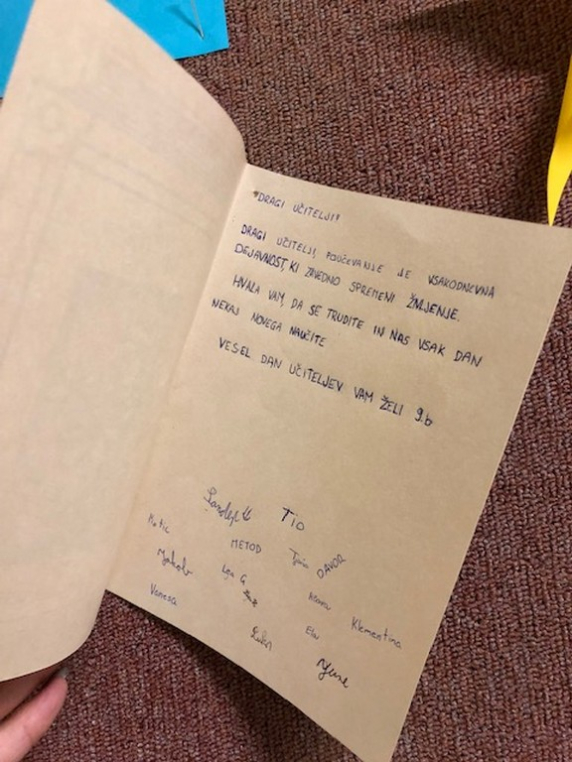 DRAGI UČITELJI!
DRAGI UČITELJI, POUČEVANJE JE VSAKODNEVNA
DEJAVNOST, KI ZAVEDNO SPREMENI ŽIVLJENJE.
HVALA VAM, DA SE TRUDITE IN NAS VSAK DAN
NEKAJ NOVEGA NAUČITE
VESEL DAN UČITELJEV VAM ŽELI 9.b
Tio
METOD
DAVOR
Jakob
Klementina
Vanesa